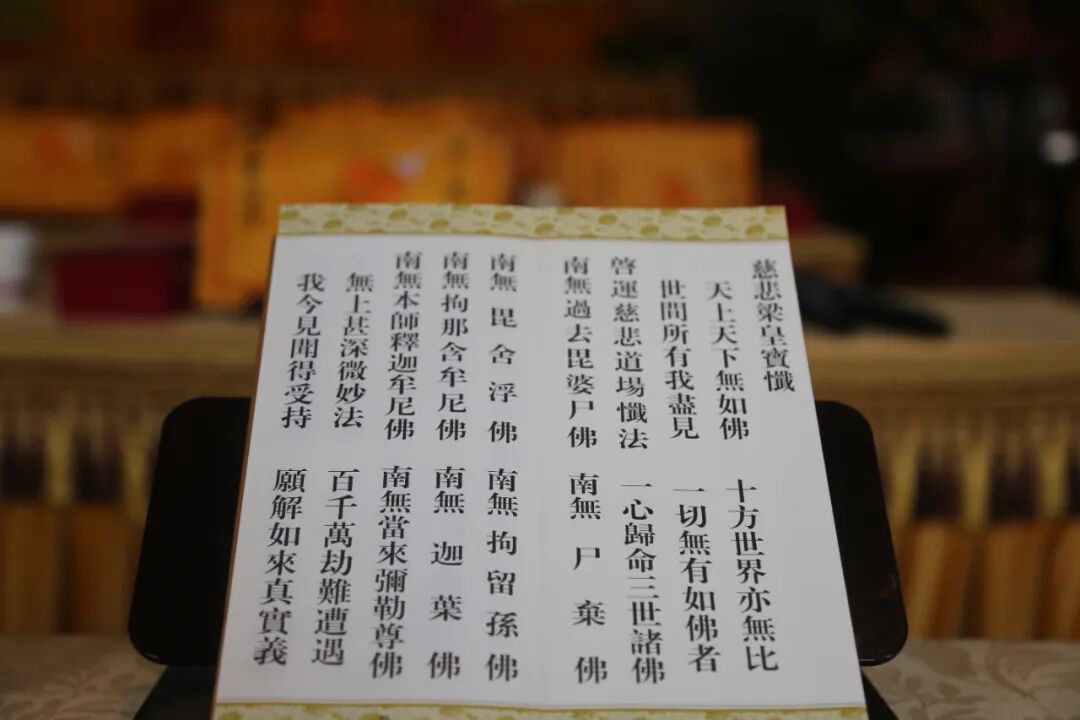 慈悲梁皇寶懺
天上天下無如佛　十方世界亦無比
世間所有我盡見　一切無有如佛者
啓運慈悲道場懺法　一心歸命三世諸佛
南無過去毘婆尸佛　南無尸棄佛
南無毘舍浮佛　南無拘留孫佛
南無拘那含牟尼佛　南無迦葉佛
南無本師釋迦牟尼佛　南無當來彌勒尊佛
無上甚深微妙法　百千萬劫難遭遇
我今見聞得受持　願解如來真實義